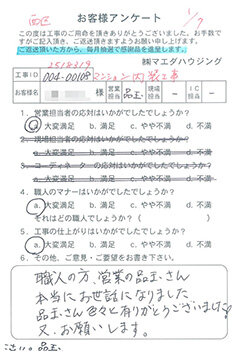 西区
1/9
お客様アンケート
この度は工事のご用命を頂きありがとうございました。お手数で
すがご記入頂き、ご返送頂きますようお願い申し上げます。
ご返送頂いた方から、毎月抽選で感謝品を進呈します。
㈱マエダハウジング
工事ID 004-0010 マンション内装工事
お客様名 様 営業担当 品玉 現場担当 － IC担当 －
1. 営業担当者の応対はいかがでしたでしょうか？
a. 大変満足 b. 満足 c. やや不満 d. 不満
2. 現場担当者の応対はいかがでしたでしょうか？
a. 大変満足 b. 満足 c. やや不満 d. 不満
3. コーディネーターの応対はいかがでしたでしょうか？
a. 大変満足 b. 満足 c. やや不満 d. 不満
4. 職人のマナーはいかがでしたでしょうか？
a. 大変満足 b. 満足 c. やや不満 d. 不満
それはどの職人でしょうか？（ ）
5. 工事の仕上がりはいかがでしたでしょうか？
a. 大変満足 b. 満足 c. やや不満 d. 不満
6. その他、ご意見・ご要望をお書き下さい。
職人の方、営業の品玉さん
本当にお世話になりました
品玉さん色々と有りがとうございました
又、お願いします。